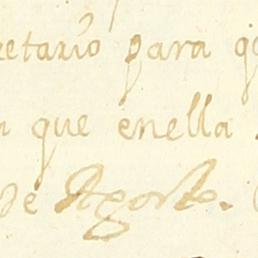 retario para q
que enella
de Agosto.